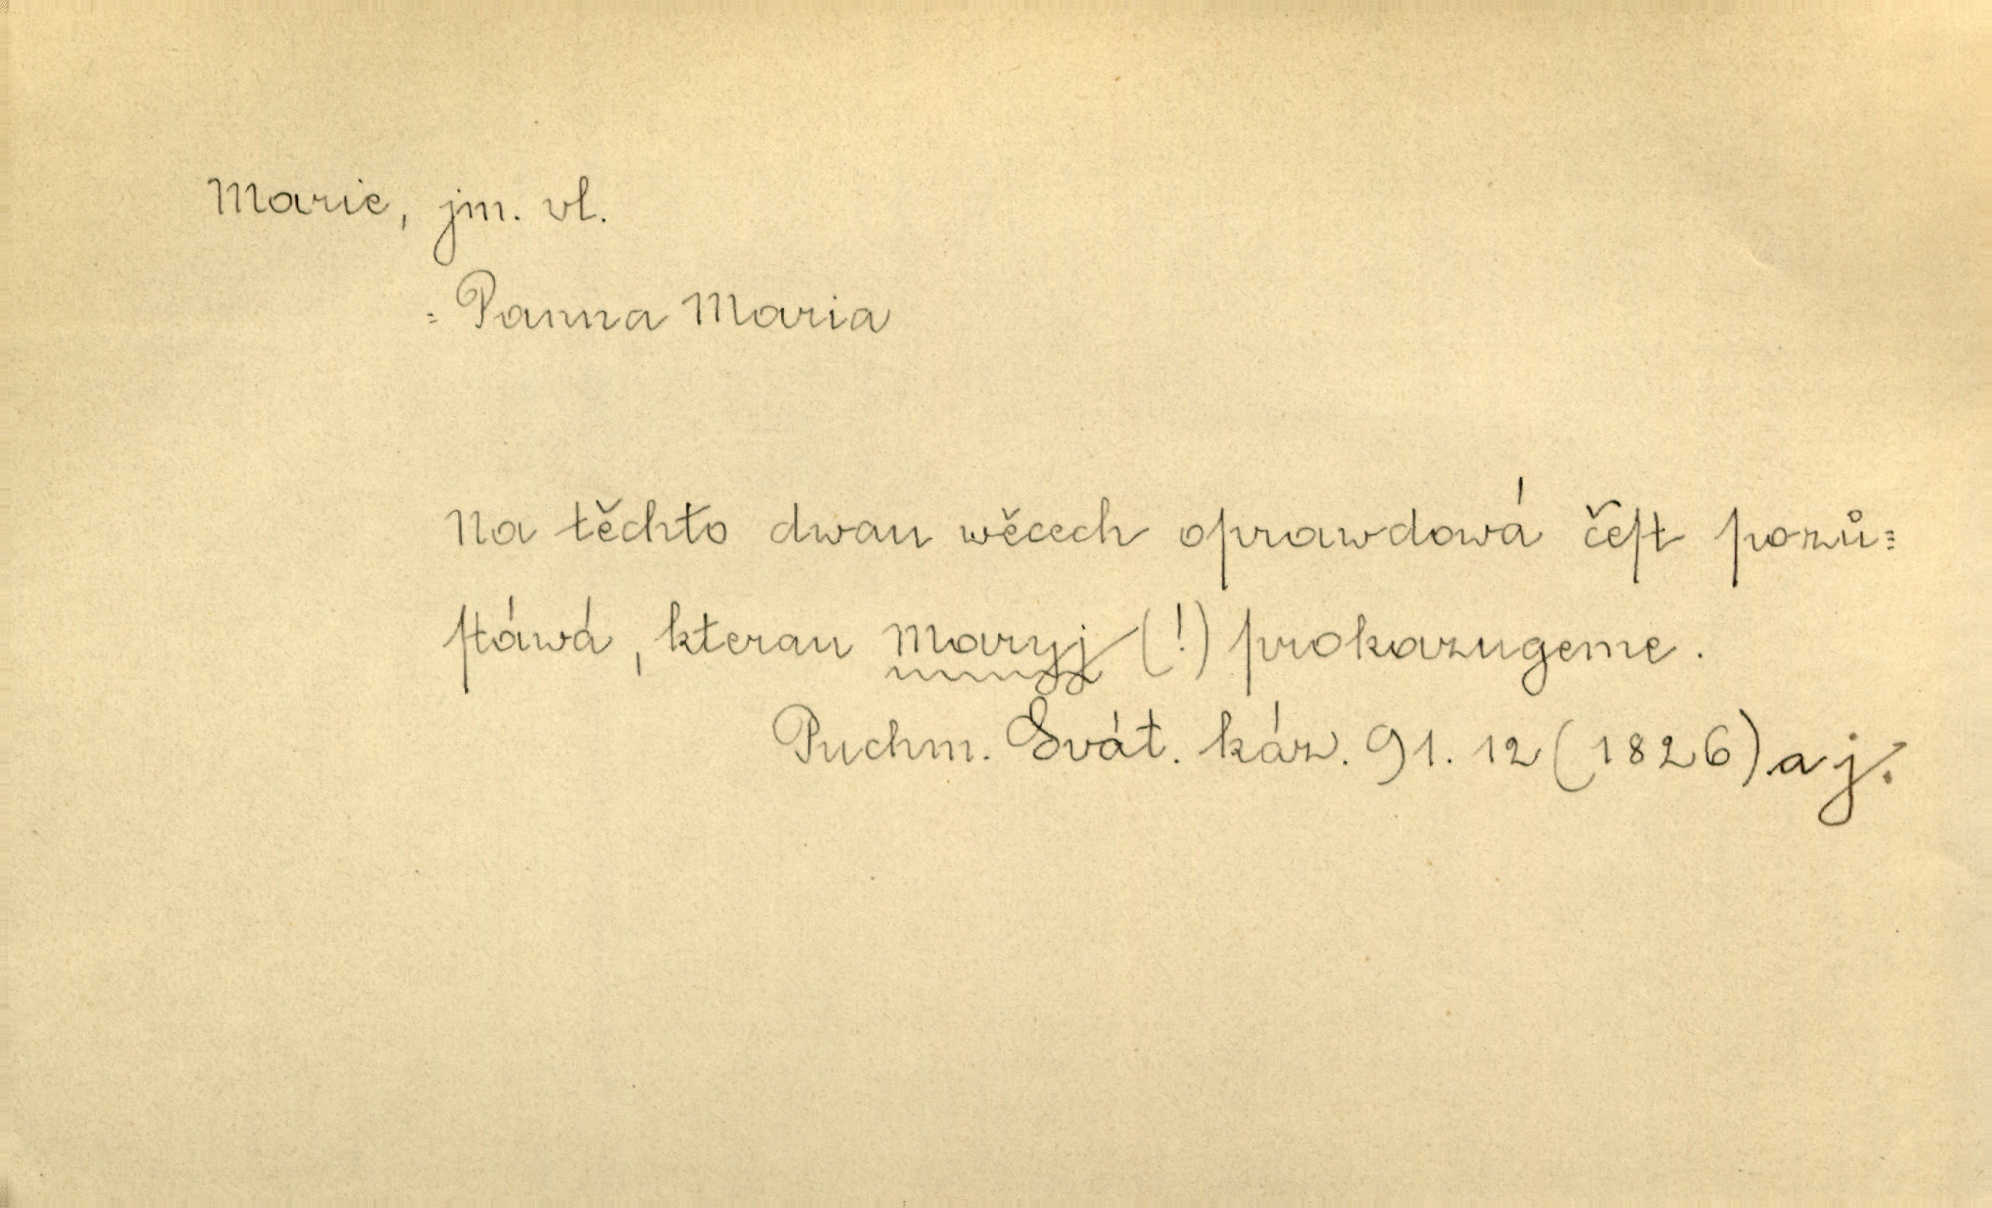 Marie, jm. vl.
= Panna Maria
Na těchto dwau wěcech oprawdowá čeſt pozů=
ſtáwá, kterau Maryj (!) prokazugeme.
Puchm. Svát. káz. 91. 12 (1826) a j.